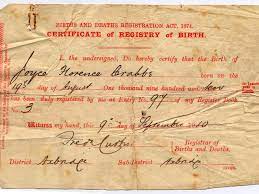 BIRTHS AND DEATHS REGISTRATION ACT, 1874.
CERTIFICATE OF REGISTRY OF BIRTH.
I, the undersigned, Do hereby certify that the Birth of
Joyce Florence Crabbe born on the
19th day of August One thousand nine hundred and
has been duly registered by me at Entry No. 97 of my Register Book
No. 3
Witness my hand, this 9th day of September 1910
Registrar of
Births and Deaths.
District Uxbridge Sub-District Uxbridge